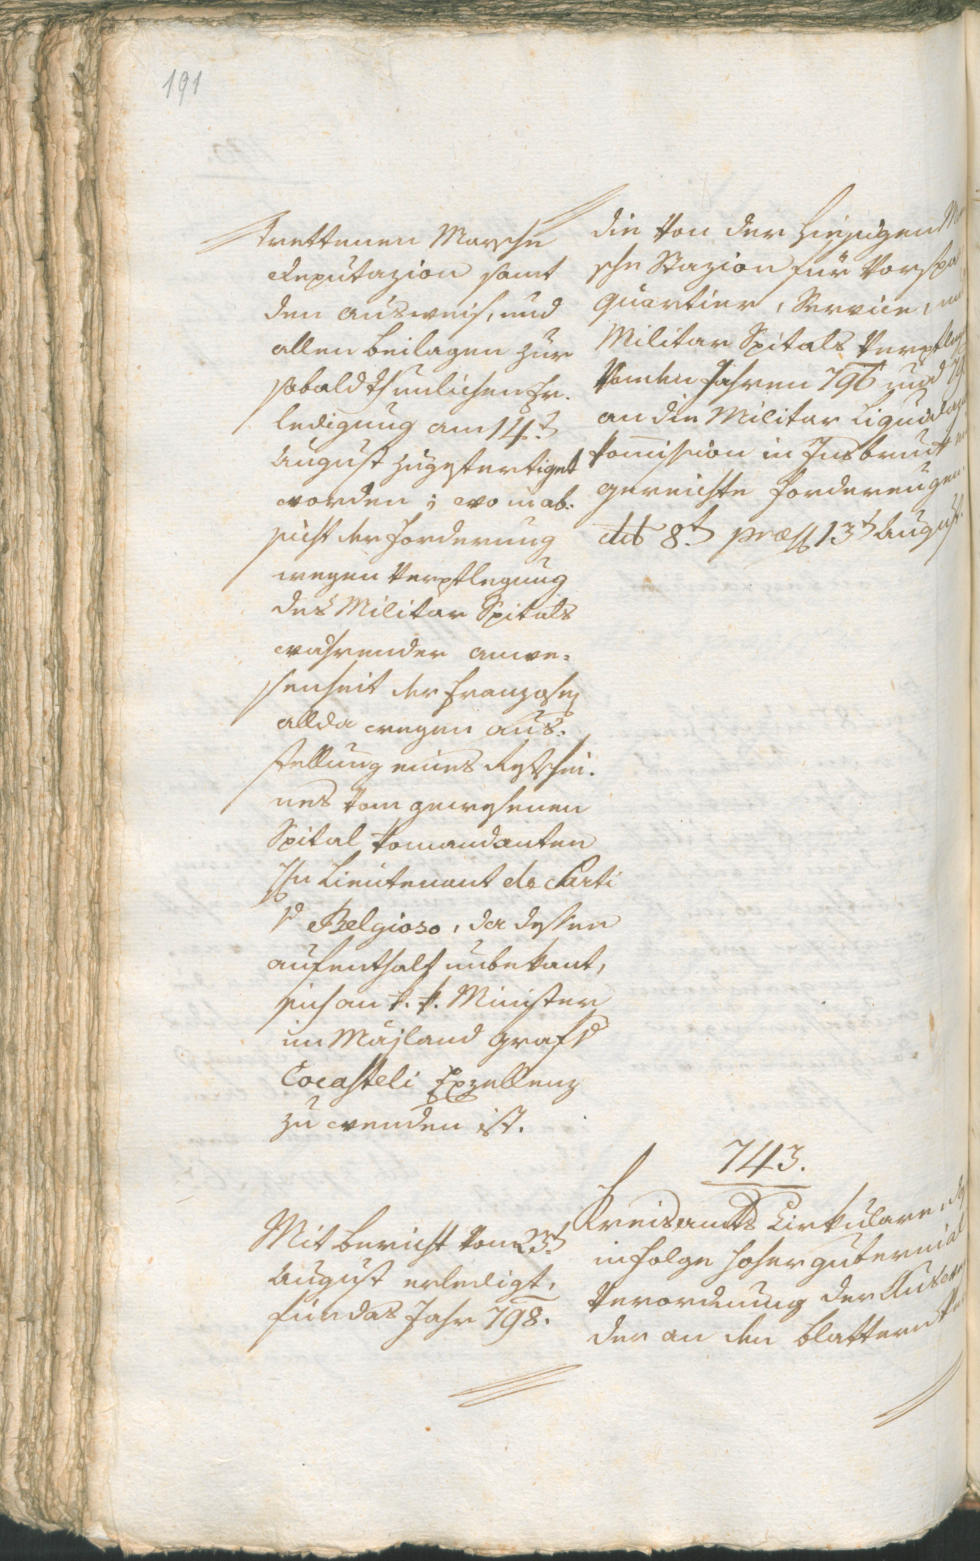 191
trettenen Marsche
Deputazion samt
den Ausweis, und
allen Beilagen zur
sobald thunlichen Er-
ledigung am 14t
August zugefertiget
worden; wo in ab-
sicht der Forderung
wegen Verpflegung
des Militar Spitals
während der Anwe-
senheit der Franzosen
allda wegen Aus-
stellung eines
nes vom gewesenen
Spital Komandanten
Hn Lieutenant de
d Belgioso, da dessen
aufenthalt unbekant,
sich an k. k. Minister
in Majland Graf v
Cocasteli Exzellenz
zu wenden ist.
Mit Bericht vom 23t
August erledigt,
für das Jahr 798.
die von der hiesigen
sche Stazion für Vorspa
Quartier, Service, und
Militar Spitals Verpfleg
von den Jahren 796 und
an die Militar Liquida
Komission in Insbruck
gereichte Forderungen
dto 8t præs 13t August
743.
Kreisamts Cirkulare
infolge hoher gubernial
Verordnung der
der an den Blattern